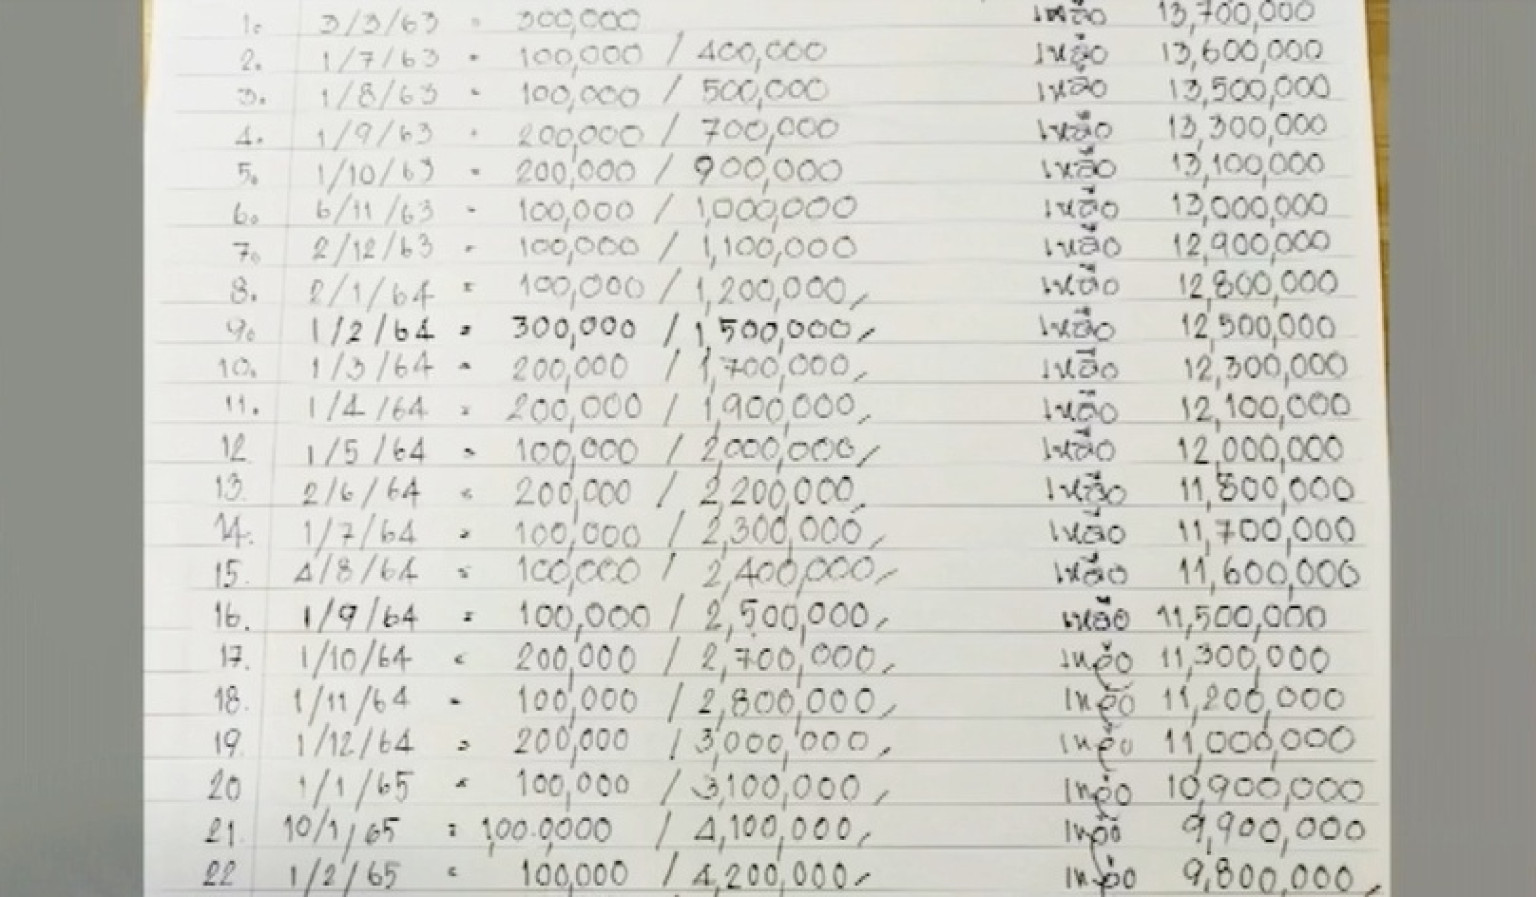 1. 3/3/63 = 300,000 เหลือ 13,700,000
2. 1/7/63 = 100,000 / 400,000 เหลือ 13,600,000
3. 1/8/63 = 100,000 / 500,000 เหลือ 13,500,000
4. 1/9/63 = 200,000 / 700,000 เหลือ 13,300,000
5. 1/10/63 = 200,000 / 900,000 เหลือ 13,100,000
6. 6/11/63 = 100,000 / 1,000,000 เหลือ 13,000,000
7. 2/12/63 = 100,000 / 1,100,000 เหลือ 12,900,000
8. 2/1/64 = 100,000 / 1,200,000, เหลือ 12,800,000
9. 1/2/64 = 300,000 / 1,500,000, เหลือ 12,500,000
10. 1/3/64 = 200,000 / 1,700,000, เหลือ 12,300,000
11. 1/4/64 = 200,000 / 1,900,000, เหลือ 12,100,000
12 1/5/64 = 100,000 / 2,000,000, เหลือ 12,000,000
13. 2/6/64 = 200,000 / 2,200,000, เหลือ 11,800,000
14. 1/7/64 = 100,000 / 2,300,000, เหลือ 11,700,000
15. 4/8/64 = 100,000 / 2,400,000, เหลือ 11,600,000
16. 1/9/64 = 100,000 / 2,500,000, เหลือ 11,500,000
17. 1/10/64 = 200,000 / 2,700,000, เหลือ 11,300,000
18. 1/11/64 = 100,000 / 2,800,000, เหลือ 11,200,000
19. 1/12/64 = 200,000 / 3,000,000, เหลือ 11,000,000
20 1/1/65 = 100,000 / 3,100,000, เหลือ 10,900,000
21. 10/1/65 = 1,00.0000 / 4,100,000, เหลือ 9,900,000
22 1/2/65 = 100,000 / 4,200,000, เหลือ 9,800,000,